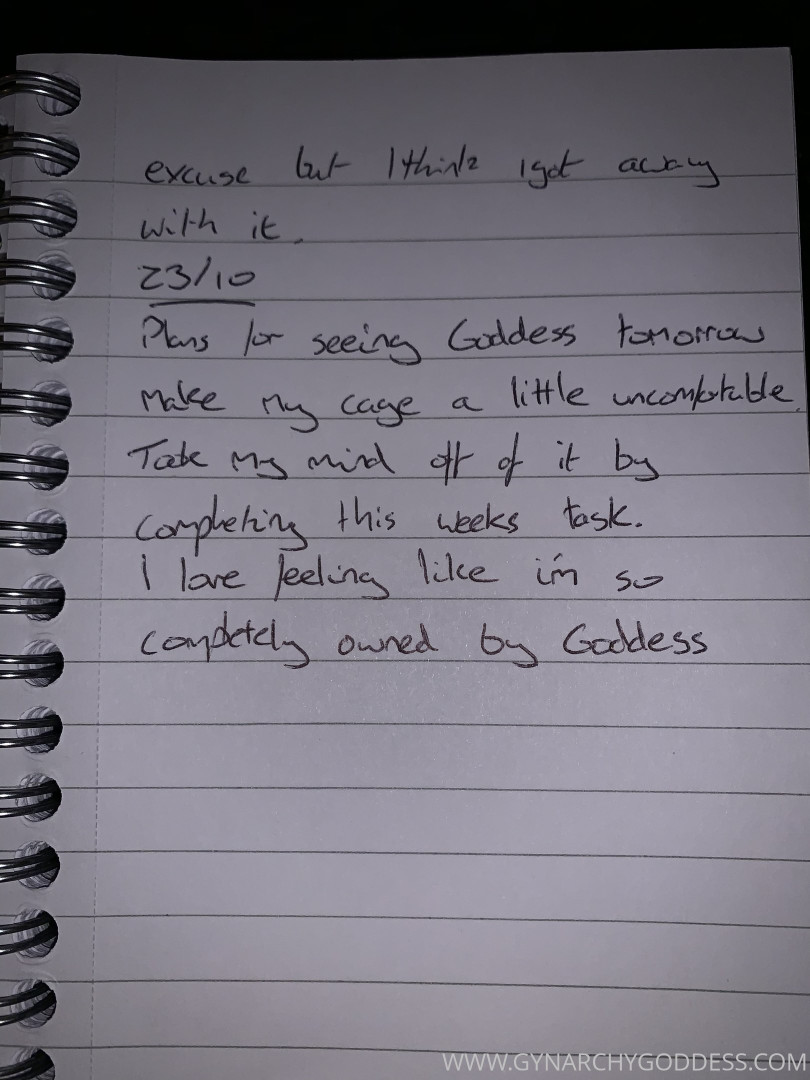 excuse but I think I got away
with it.
23/10
Plans for seeing Goddess tomorrow
make my cage a little uncomfortable.
Took my mind off of it by
completing this weeks task.
I love feeling like i'm so
completely owned by Goddess
WWW.GYNARCHYGODDESS.COM